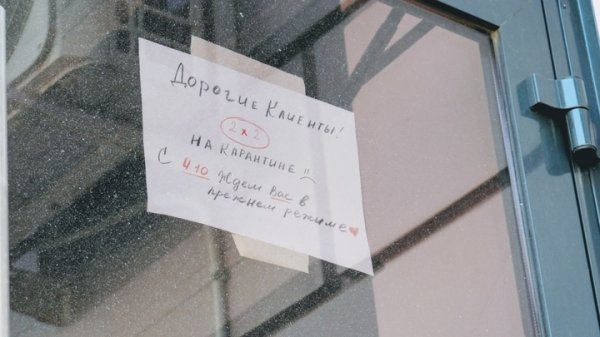 Дорогие Клиенты!
2x2
НА КАРАНТИНЕ
С 4 10 Ждем Вас в
прежнем режиме